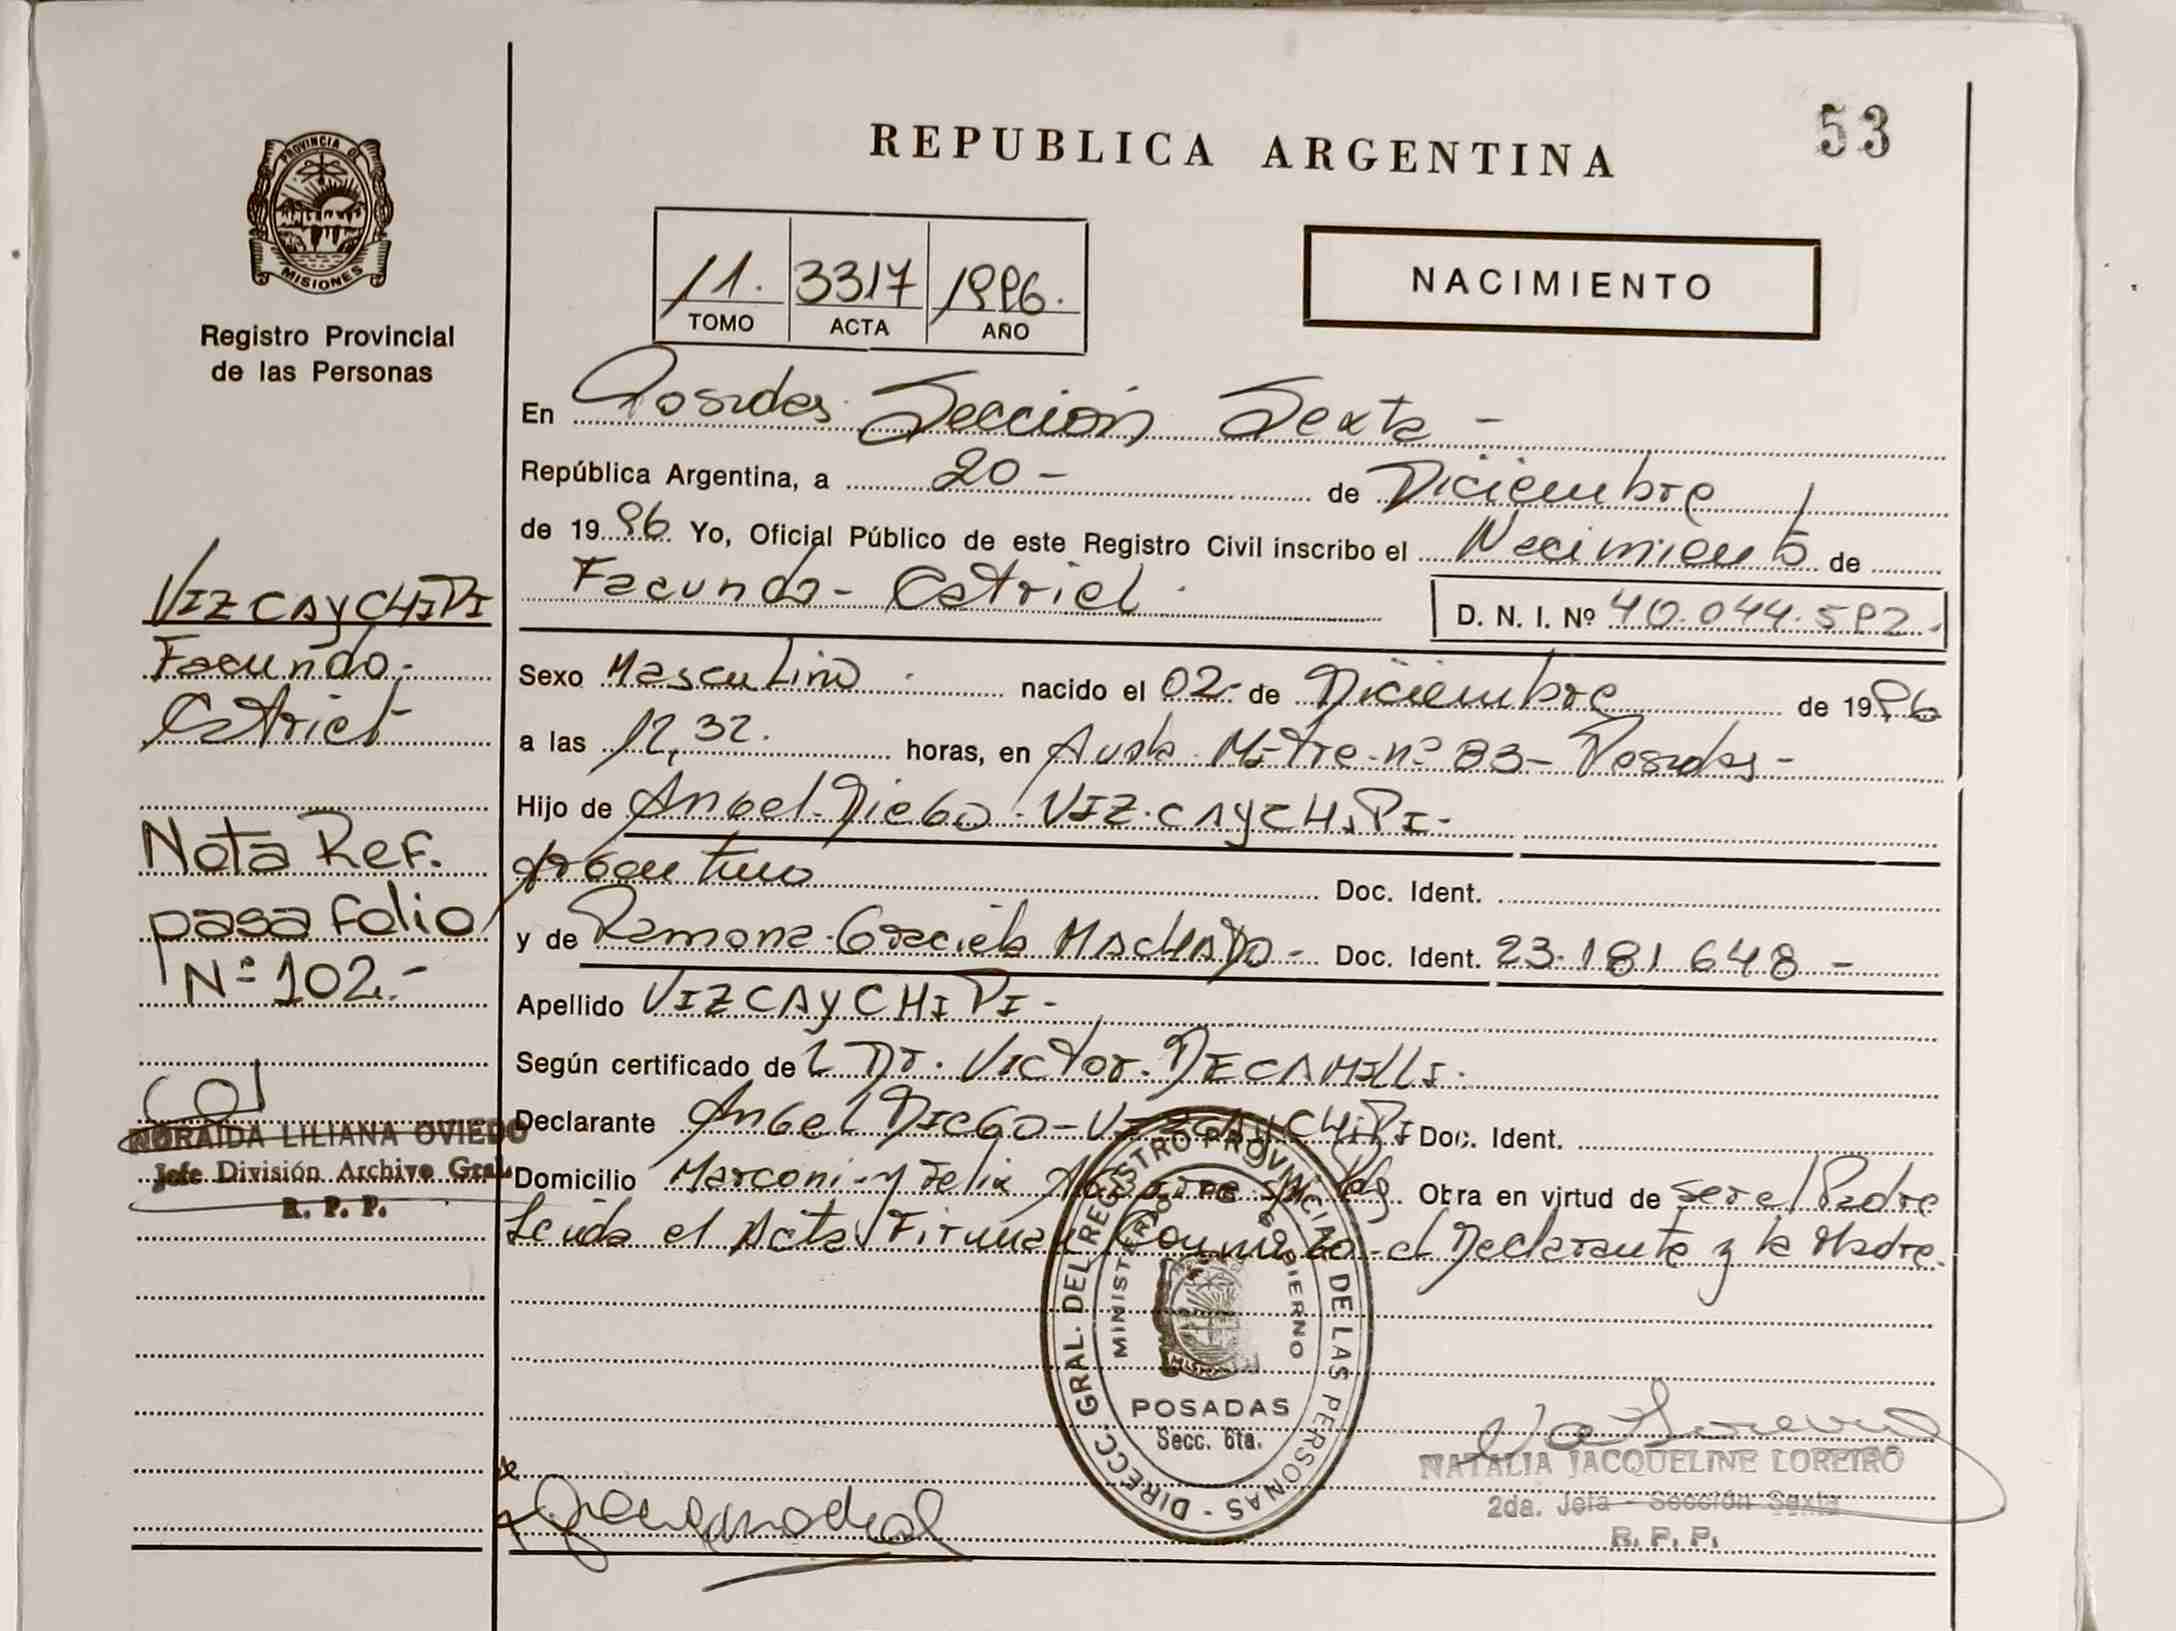 53
REPUBLICA ARGENTINA
PROVINCIA DE
MISIONES
Registro Provincial
de las Personas
11. 3317 1996.
TOMO ACTA AÑO
NACIMIENTO
En Posadas Sección Sexta -
República Argentina, a 20 - de Diciembre
de 1996 Yo, Oficial Público de este Registro Civil inscribo el Nacimiento de
Facundo - Catriel.
D. N. I. Nº 40.044.592.
Sexo Masculino. nacido el 02- de Diciembre de 1996
a las 12,32. horas, en Avda. Mitre nº 83 - Posadas -
Hijo de Angel Diego VIZCAYCHIPI -
Argentino Doc. Ident.
y de Ramona Graciela MACHADO - Doc. Ident. 23.181.648 -
Apellido VIZCAYCHIPI -
Según certificado del Dr. Victor DECAMILLI.
Declarante Angel Diego - VIZCAYCHIPI Doc. Ident.
Domicilio Marconi y Felix Pdas. Obra en virtud de ser el Padre
Leída el Acta Firman Conmigo el Declarante y la Madre.
VIZCAYCHIPI
Facundo -
Catriel -
Nota Ref.
pasa folio
Nº 102.-
NORAIDA LILIANA OVIEDO
Jefe División Archivo Gral.
R. P. P.
DIRECC. GRAL. DEL REGISTRO PROVINCIAL DE LAS PERSONAS -
MINISTERIO DE GOBIERNO
MISIONES
POSADAS
Secc. 6ta.
NATALIA JACQUELINE LOREIRO
2da. Jefa - Sección Sexta
R. P. P.